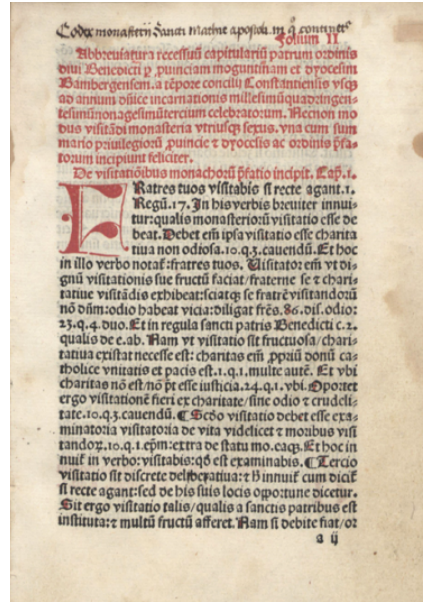 Codex monasterij Sancti Mathie apostoli in q̊ continet᷑
Folium II
Abbreuiatura recessuū capitulariū patrum ordinis
diui Benedicti ꝑ ꝓuinciam moguntinam et dyocesim
Bambergensem. a tēpore concilij Constantiensis vsqꝫ
ad annum dn̄ice incarnationis millesimūquadringen-
tesimūnonagesimūtercium celebratorum. Necnon mo
dus visitādi monasteria vtriusqꝫ sexus. vna cum sum
mario priuilegiorū ꝓuincie ⁊ dyocesis ac ordinis p̄fa-
torum incipiunt feliciter.
De visitatiōibus monachorū p̄fatio incipit. Cap̄. 1.
FRatres tuos visitabis si recte agant. 1.
Regū. 17. In his verbis breuiter innui
tur: qualis monasteriorū visitatio esse de
beat. Debet em̄ ipsa visitatio esse charita
tiua non odiosa. 10. q. 3. cauendū. Et hoc
in illo verbo notat᷑: fratres tuos. Uisitatorem em̄ vt di-
gnū visitationis sue fructū faciat/ fraterne se ⁊ chari-
tatiue visitādis exhibeat: sciatqꝫ se fratrē visitandorū
nō dn̄m: odio habeat vicia: diligat fr̄es. 86. dis. odio:
23. q. 4. duo. Et in regula sancti patris Benedicti c. 2.
qualis de. e. ab. Nam vt visitatio sit fructuosa/ chari-
tatiua existat necesse est: charitas em̄ ꝓpriū donū ca-
tholice vnitatis et pacis est. 1. q. 1. multe autē. Et vbi
charitas nō est/ nō pt̄ esse iusticia. 24. q. 1. vbi. Oportet
ergo visitationē fieri ex charitate/ sine odio ⁊ crudeli-
tate. 10. q. 3. cauendū. ¶ Scd̄o visitatio debet esse exa-
minatoria visitatoria de vita videlicet ⁊ moribus visi
tandoꝝ. 10. q. 1. ep̄m: extra de statu mo. eaqꝫ. Et hoc in
nuit᷑ in verbo: visitabis: qd̄ est examinabis. ¶ Tercio
visitatio sit discrete deliberatiua: ⁊ ħ innuit᷑ cum dicit᷑
si recte agant: sed de his suis locis oportune dicetur.
Sit ergo visitatio talis/ qualis a sanctis patribus est
instituta: ⁊ multū fructū afferet. Nam si debite fiat/ or
a ij